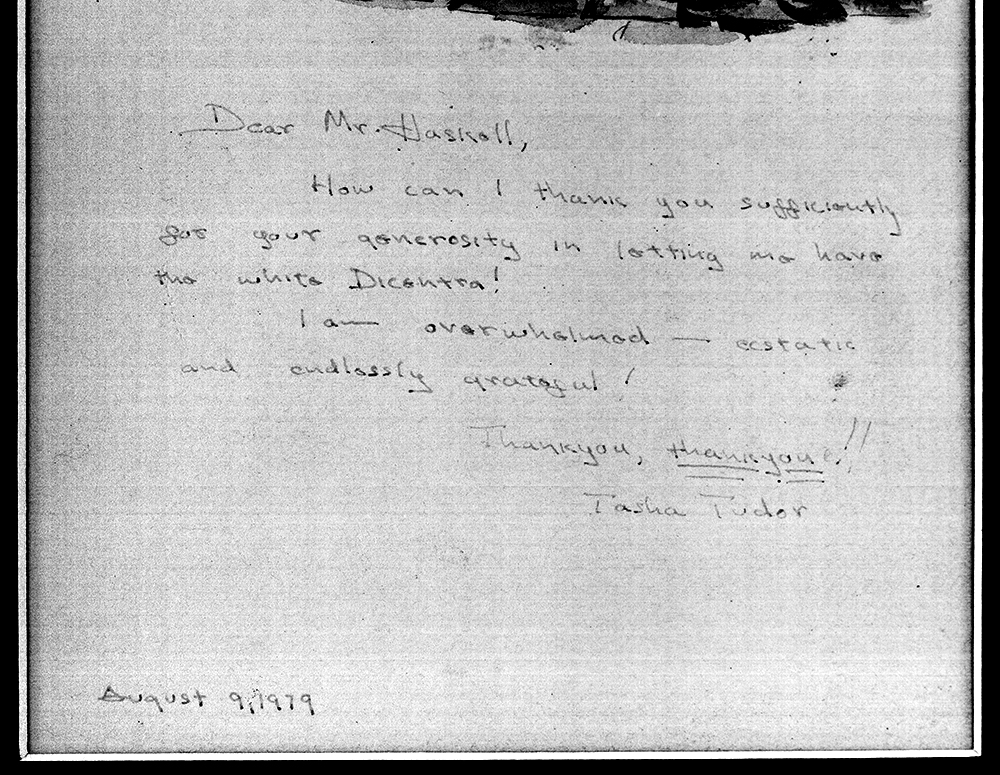 Dear Mr. Haskell,
How can I thank you sufficiently
for your generosity in letting me have
the white Dicentra!
I am overwhelmed — ecstatic
and endlessly grateful!
Thankyou, thankyou!!
Tasha Tudor
August 9, 1979